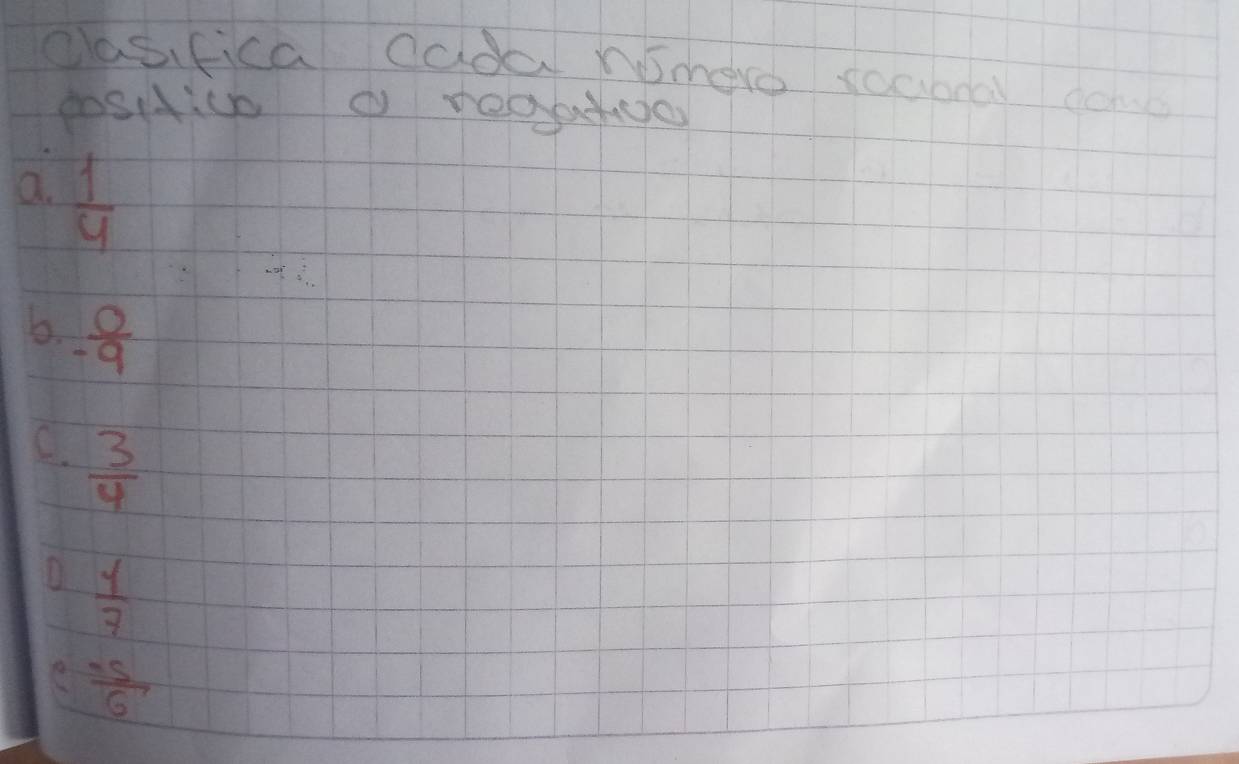 Clasifica cada número racional como
positivo o negativo
a. 1/4
b. 0/-9
c. 3/4
D 1/7
e. -5/6